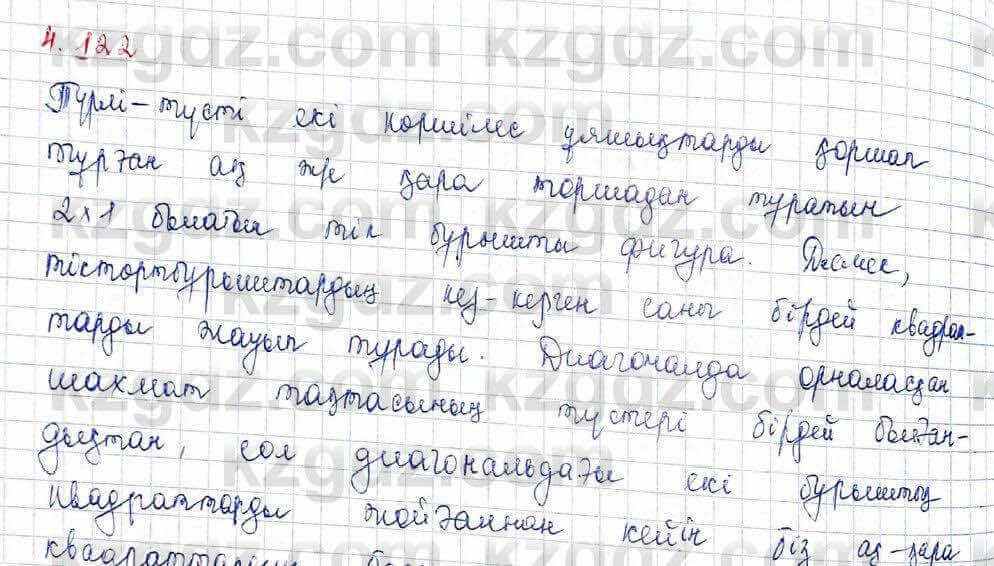 4.122
Түрлі-түсті екі көршілес ұяшықтарды қоршап
тұрған ақ және қара торшадан тұратын
2x1 болатын тік бұрышты фигура. Демек,
тіктөртбұрыштардың кез-келген саны бірдей квадрат-
тарды жауып тұрады. Диагональда орналасқан
шахмат тақтасының түстері бірдей болған-
дықтан, сол диагональдағы екі бұрыштың
квадраттарды жойғаннан кейін біз ақ-қара